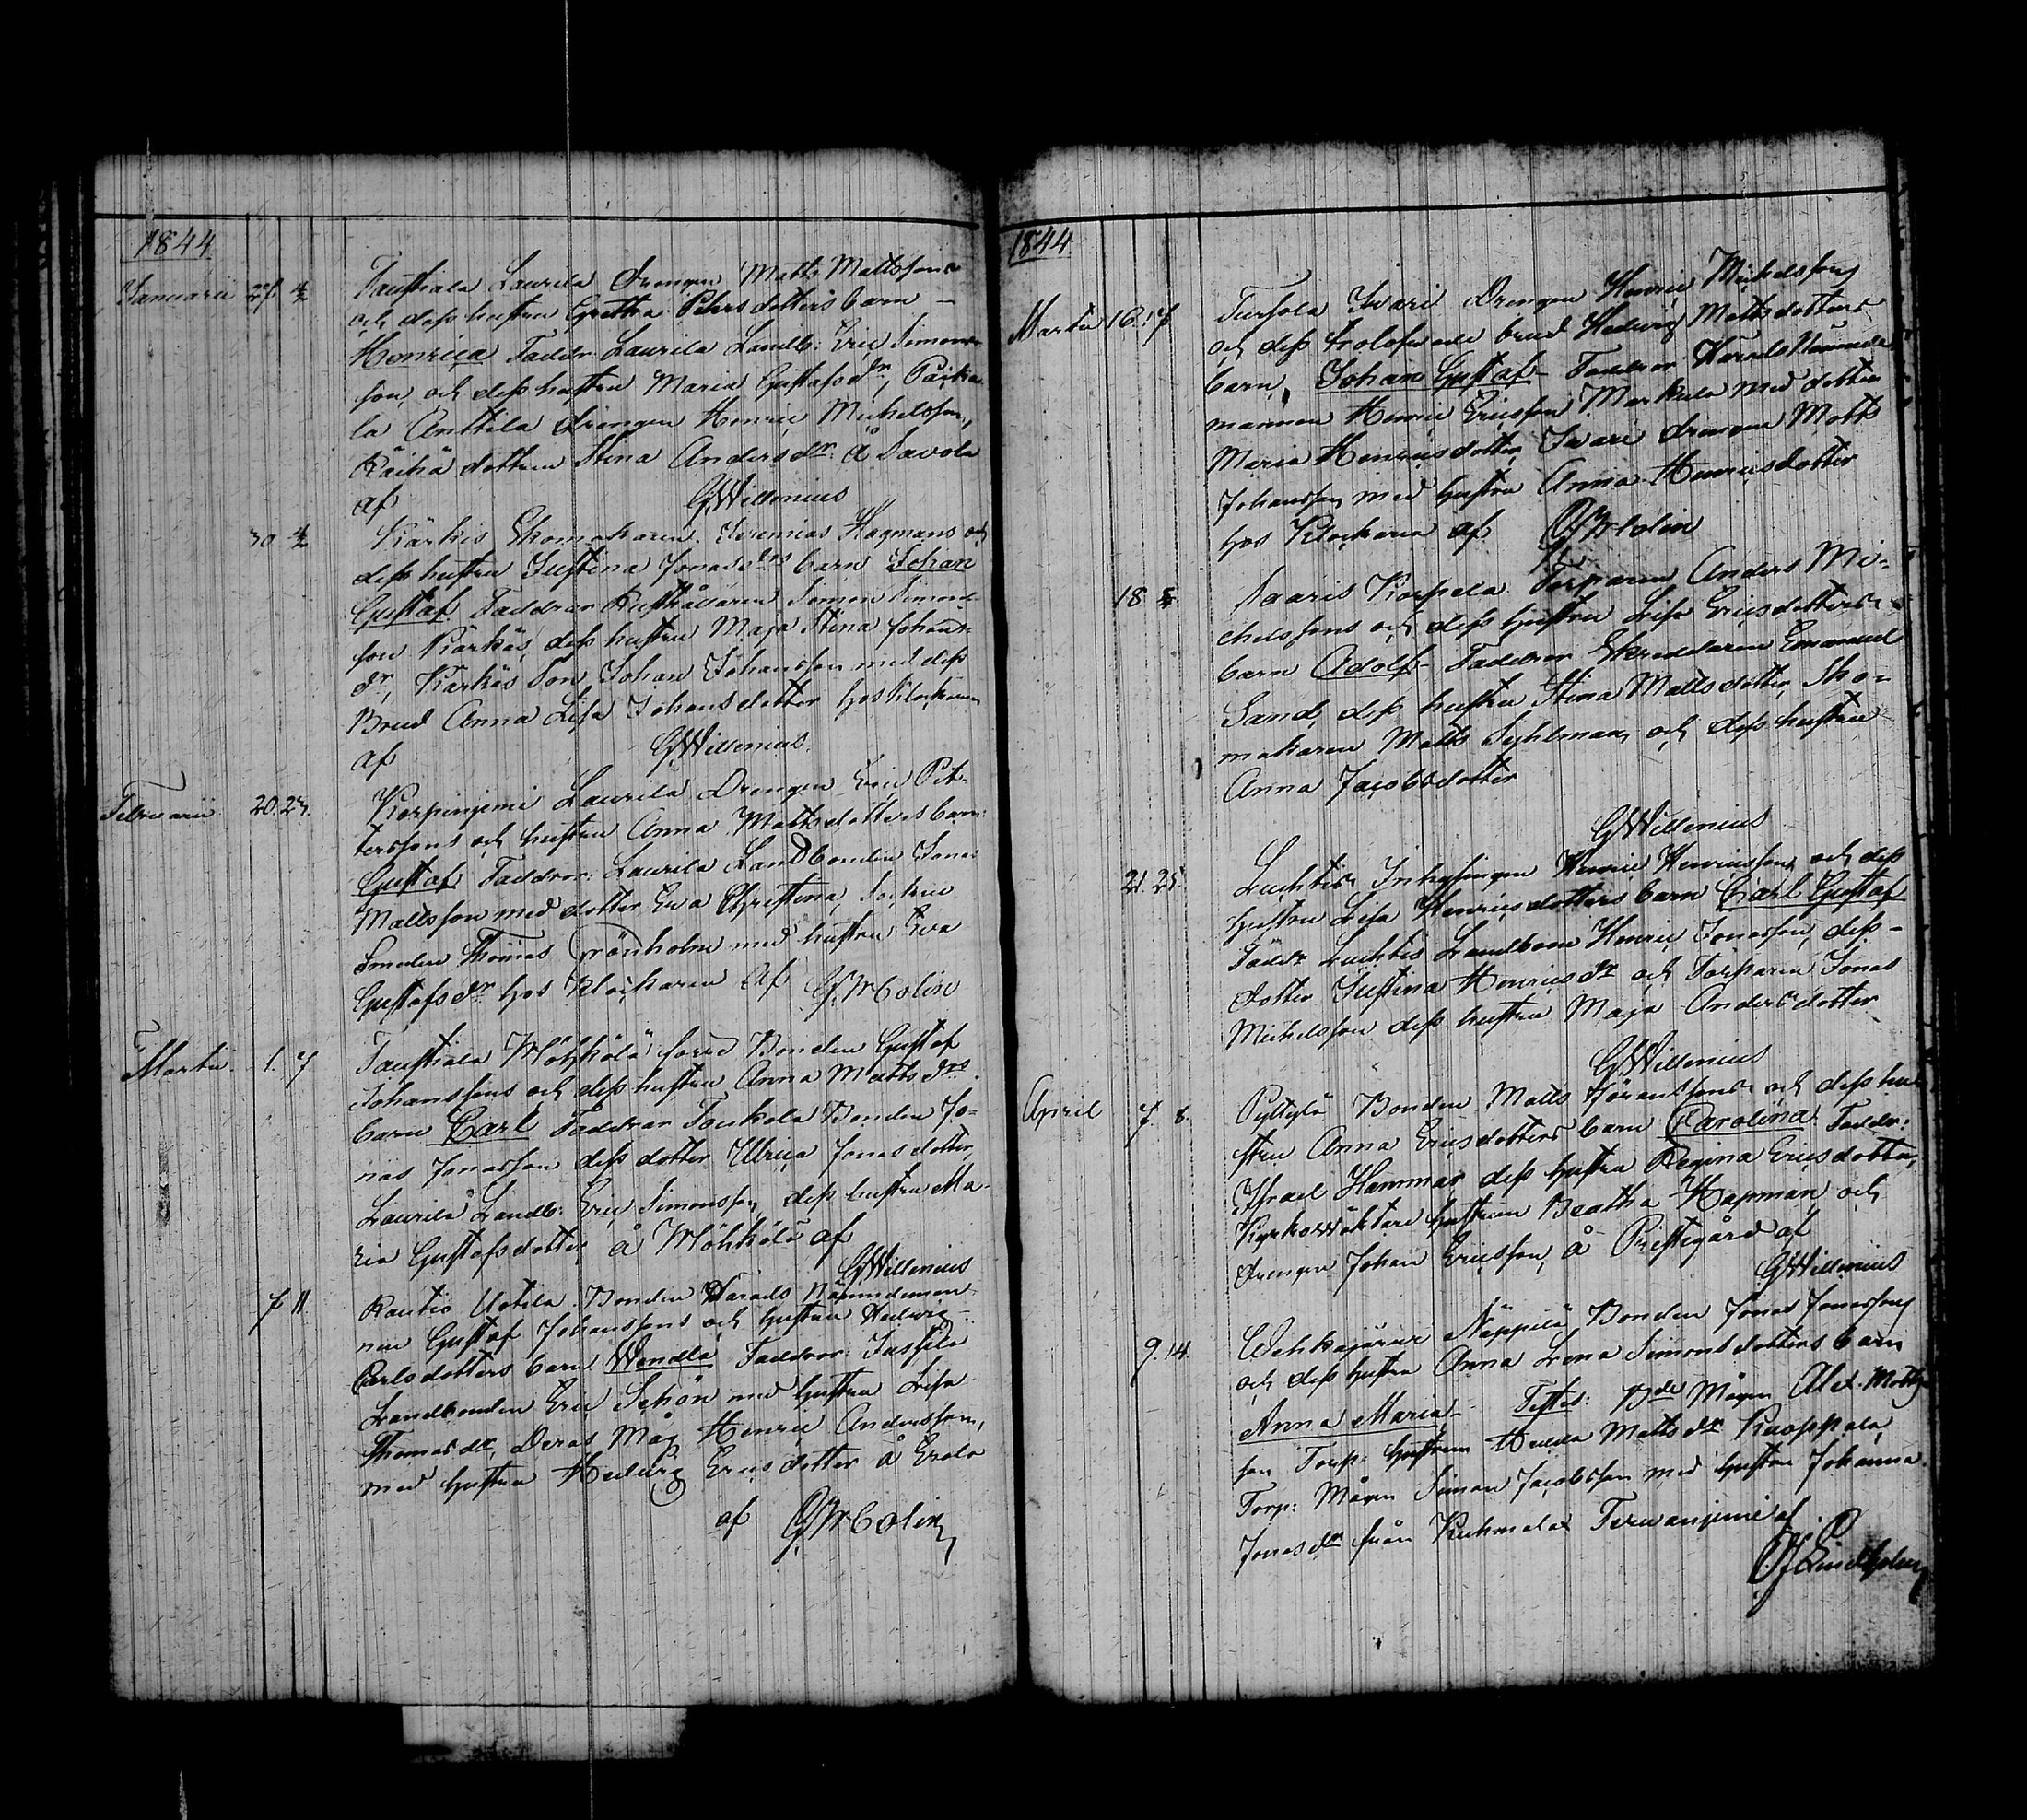 1844
Januarii 28 4/2 Taustiala Laurila Drengen Matts Mattssons
och dess hustru Gretha Pehrsdotters barn —
Henrica Faddr: Laurila Landb: Eric Simons-
son, och dess hustru Maria Gustafsdr, Paika
la Anttila drengen Henric Michelsson,
Räihä dottren Stina Andersdr. å Savola
af GWillenius
30 4/2 Kärkis Skomakaren Jeremias Hagmans och
dess hustru Justina Jonaedrs barn Johan
Gustaf Faddrar Rusthållaren Simon Simons-
son Kärkäs, dess hustru Maja Stina Johans-
dr, Kärkäs Son Johan Johansson med dess
Brud Anna Lisa Johansdotter hos Klockaren
af GWillenius
Februarii 20. 25. Korpinjemi Laurila Drengen Eric Pet-
terssons och hustru Anna Mattsdotters barn:
Gustaf Faddrar: Laurila Landbonden Jonas
Mattsson med dotter Eva Christina, Sockne
Smeden Thomas Grönholm med hustru Eva
Gustafsdr hos Klockaren af
Martii 1. 7 Taustiala Möhkölä förre Bonden Gustaf
Johanssons och dess hustru Anna Mattsdrs
barn Carl Faddrar Toukola Bonden Jo-
nas Jonasson dess dotter Ulrica Jonasdotter,
Laurila Landb: Eric Simonsson, dess hustru Ma-
ria Gustafsdotter å Möhkölä af
GWillenius
7 11. Rautio Uotila Bonden Härads Nämndeman-
nen Gustaf Johanssons och hustru Hedvig
Carlsdotters barn Wendla Faddrar: Jussila
Landbonden Eric Schön med hustru Lisa
Thomasdr, Deras Måg Henric Andersson,
med hustru Hedvig Ericsdotter å Erola
af
1844
Martii 16. 17 Tursola Iwari Drengen Henric Michelssons
och dess trolofwade brud Hedwig Mattsdotters
barn, Johan Gustaf Faddrar Härads Nämnde
mannen Henric Ericsson Markula med dotter
Maria Henricsdotter, Iwari drengen Matts
Johansson med hustru Anna Henricsdotter
hos Klockaren af
18 Saaris Korpela Torparen Anders Mi-
chelssons och dess hustru Lisa Ericsdotters
barn Adolf Faddrar Skreddaren Emanuel
Sand, dess hustru Stina Mattsdotter, Sko-
makaren Matts och dess hustru
Anna Jacobsdotter
GWillenius
21. 25. Luchtis Inhysingen Henric Henricssons och dess
hustru Lisa Henricsdotters barn Carl Gustaf
Faddr Luchtis Landbon Henric Jonasson, dess
dotter Justina Henricsdr och Torparen Jonas
Michelsson dess hustru Maja Andersdotter
GWillenius
April 7. 8. Pyttylä Bonden Matts Göranssons och dess hu-
stru Anna Ericsdotters barn Carolina Faddr:
Israel Hammar dess hustru Regina Ericsdotter,
Kyrkowäktare hustrun Beatha Hapman och
drengen Johan Ericsson, å Prestegård af
GWillenius
9. 14. Wehkajärwi Näppilä Bonden Jonas Jonassons
och dess hustru Anna Lena Simonsdotters barn
Anna Maria Testes: Bde Mågen Alex. Matts-
son Torp: hustrun Hedda Mattsdr Knoppala,
Torp: Mågen Simon Jacobsson med hustru Johanna
Jonasdr från Kuhmalax af
Lindholm